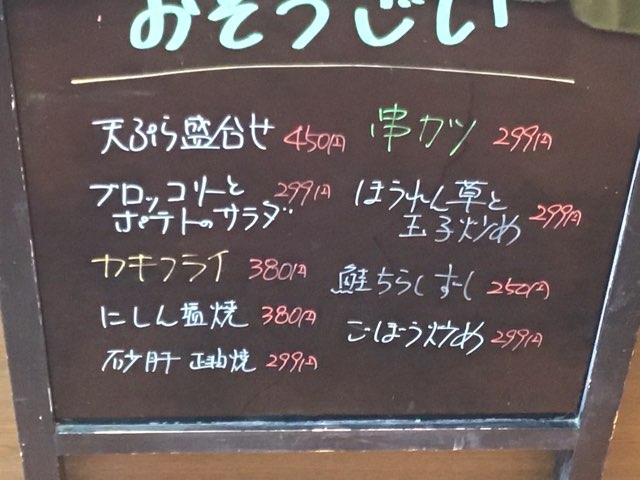 おそうざい
天ぷら盛合せ 450円
ブロッコリーと 299円
ポテトのサラダ
カキフライ 380円
にしん塩焼 380円
砂肝 正油焼 299円
串カツ 299円
ほうれん草と
玉子炒め 299円
鮭ちらしずし 250円
ごぼう炒め 299円